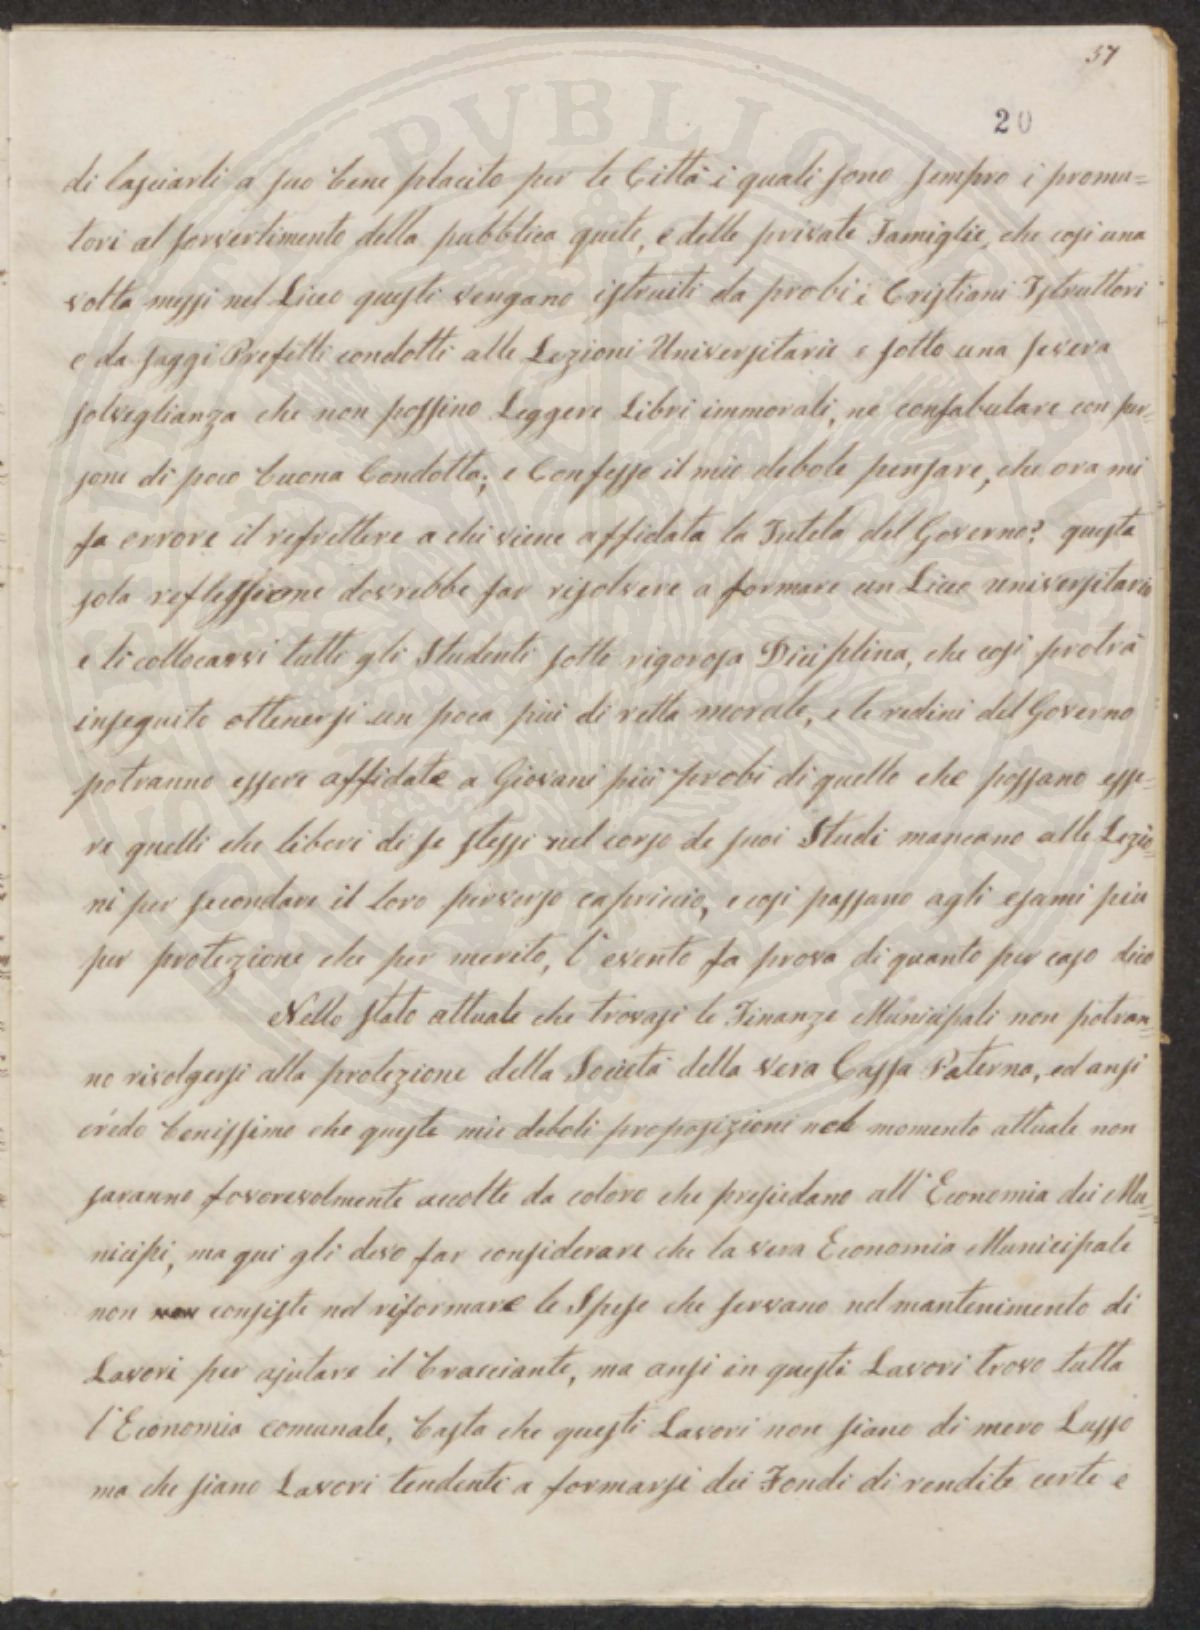 37
20
di lasciarli a suo bene placito per le Città i quali sono sempro i promu=
tori al sorvertimento della pubblica quete, e delle private Famiglie, che così una
volta messi nel Liceo questi vengano istruiti da probi i Cristiani Istruttori
e da saggi Prefetti condotti alle Lezioni Universitarie e sotto una severa
solveglianza che non possino Leggere Libri immorali, ne confabulare con per=
sone di poco buona Condotta; e Confesso il mio debole pensare, che ora mi
fa errore il refrettere a chi viene affidata la Tutela del Governo? questa
sola reflessione dovrebbe far risolvere a formare un Liceo universitario
e li collocarvi tutti gli Studenti sotto rigorosa Diciplina, che così protrà
inseguito ottenersi un poca più di retta morale, e le redini del Governo
potranno essere affidate a Giovani più probi di quello che possano esse=
re quelli che liberi di se stessi nel corso de suoi Studi mancano alle Lezio=
ni per secondare il loro perverso capriccio, e così passano agli esami più
per protezione che per merito, l'evento fa prova di quanto per caso dico
Nello stato attuale che trovasi le Finanze Municipali non potran=
no rivolgersi alla protezione della Società della vera Cassa Paterna, ed ansi
crédo benissimo che queste mie deboli proposizioni nel momento attuale non
saranno fovorevolmente accolte da coloro che presiedano all'Economia dei Mu=
nicipi, ma qui gli devo far considerare che la vera Economia Municipale
non non consiste nel riformare le Spese che servano nel mantenimento di
Lavori per ajutare il bracciante, ma ansi in questi Lavori trovo tutta
l'Economia comunale, basta che questi Lavori non siano di mero Lusso
ma che siano Lavori tendenti a formarsi dei Fondi di rendite certe e